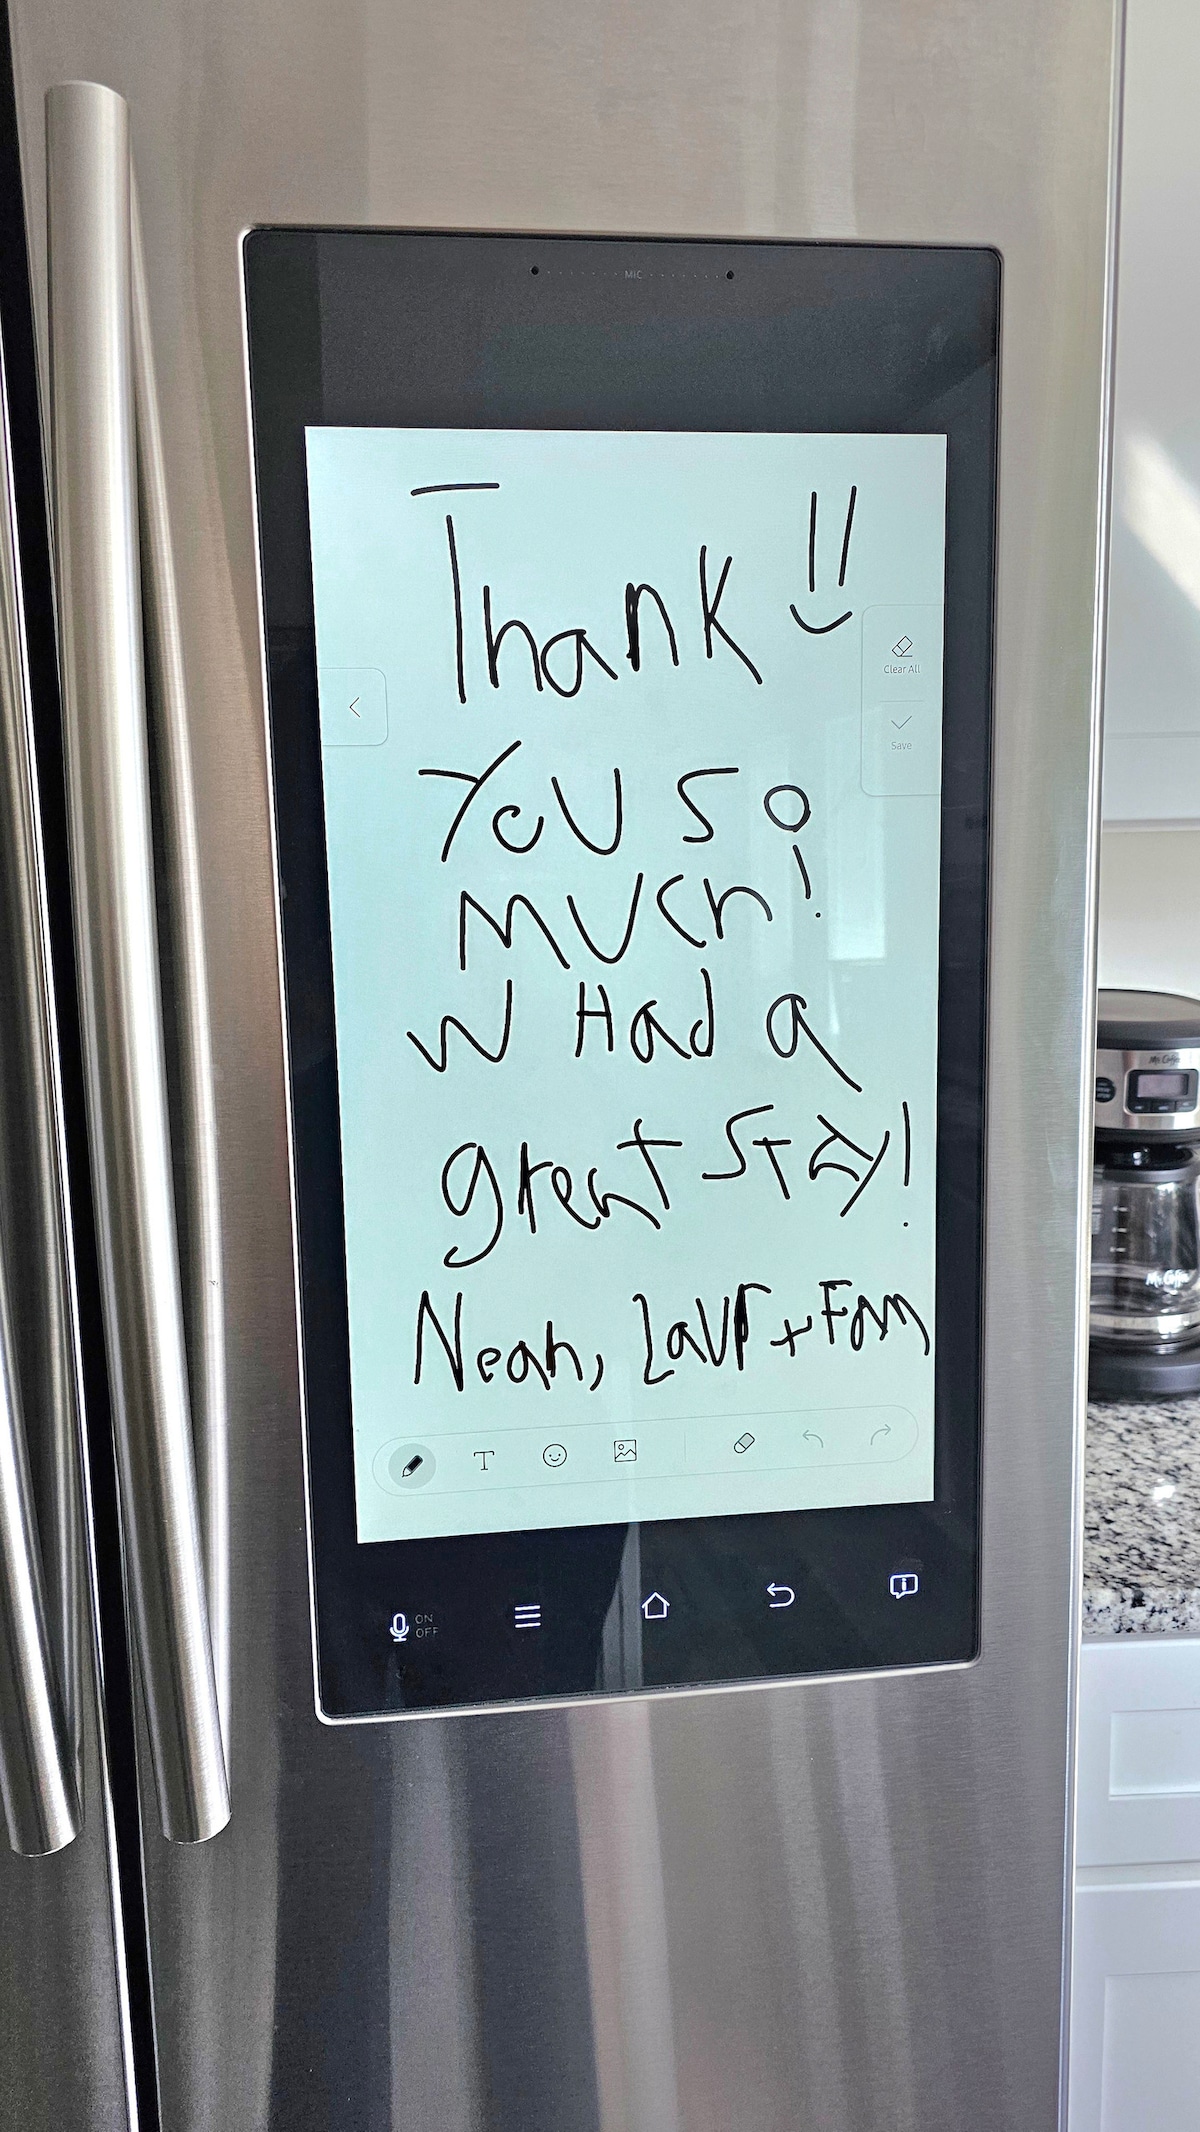 MIC
Thank
You so
much!
W Had a
great stay!
Neah, Laur + Fam
Clear All
Save
T
ON
OFF
Mr. Coffee
Mr. Coffee